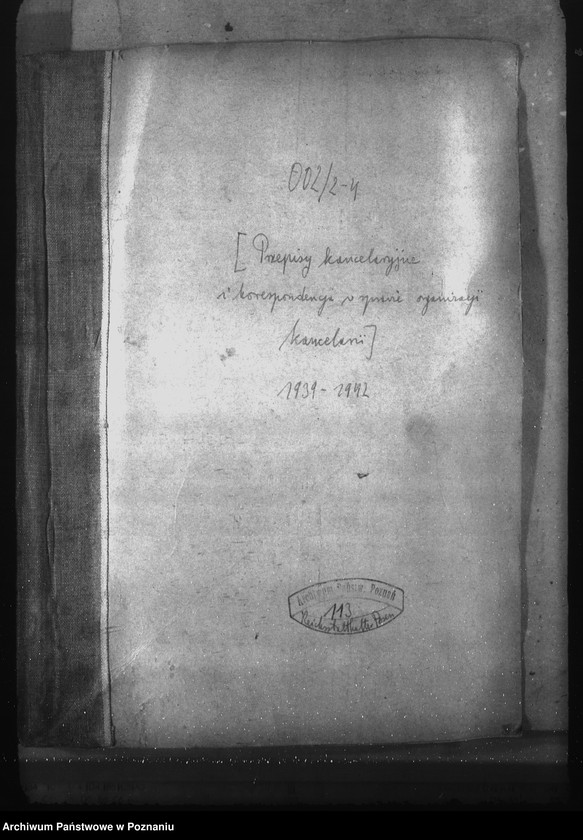 002/2-4
[Przepisy kancelaryjne
i korespondencja w sprawie organizacji
kancelarii]
1939-1942
Archiwum Państw. Poznań
113
Reichsstatthalter Posen
Archiwum Państwowe w Poznaniu